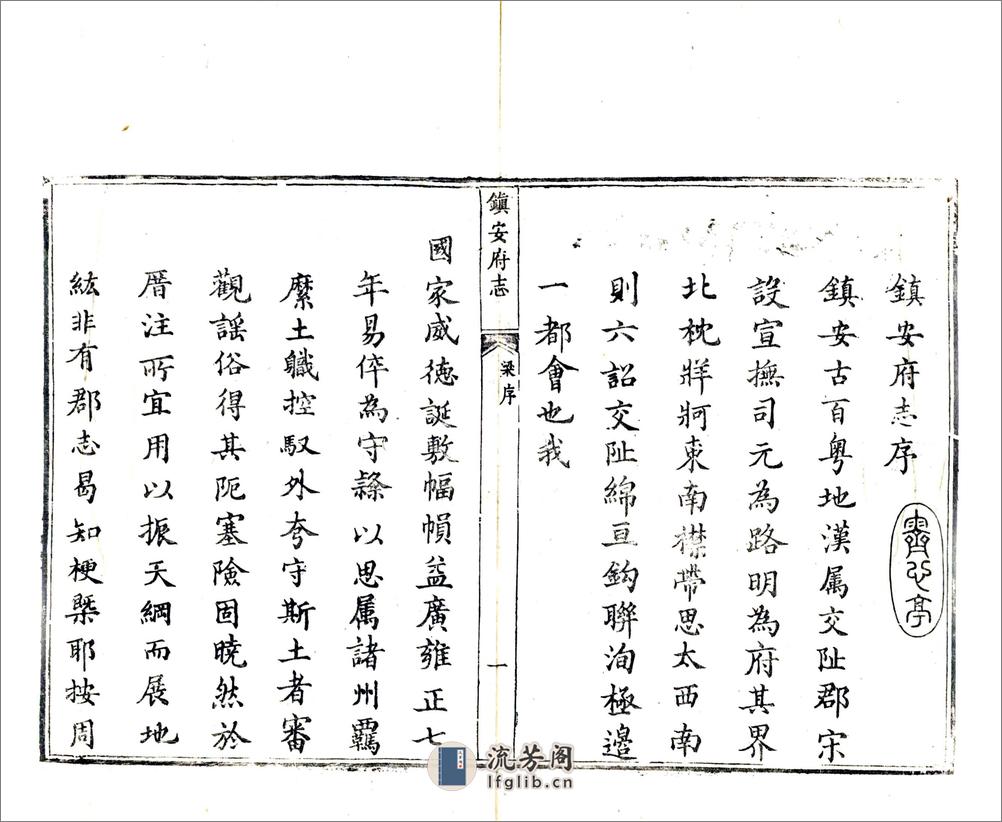 鎮安府志序
霽心亭
鎮安古百粤地漢属交阯郡宋
設宣撫司元為路明為府其界
北枕牂牁東南襟帶思太西南
則六詔交阯綿亘鈎聯洵極邊
一都會也我
鎮安府志
梁序
一
國家威德誕敷幅幀益廣雍正七
年易倅為守隸以思属諸州羈
縻土職控馭外夸守斯土者審
觀謡俗得其阨塞險固曉然於
厝注所宜用以振天綱而展地
紘非有郡志曷知梗槩耶按周
流芳阁
lfglib.cn